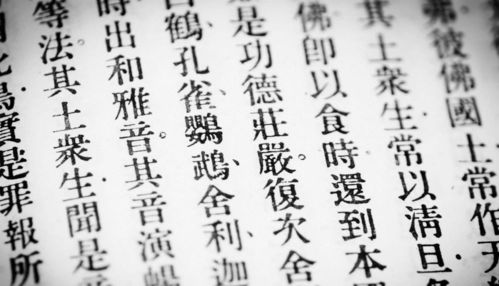 弗.彼佛國土.常作天
其土衆生.常以淸旦.
佛卽以食時還到本
是功德莊嚴。復次舍
白鶴、孔雀、鸚鵡、舍利、迦
時出和雅音。其音演暢
等法。其土衆生.聞是
此鳥實是罪報所